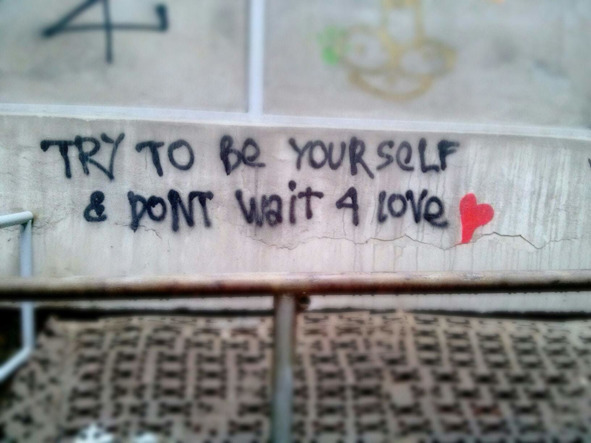 TRY TO Be YOURSeLF
& DONT Wait 4 lOVe